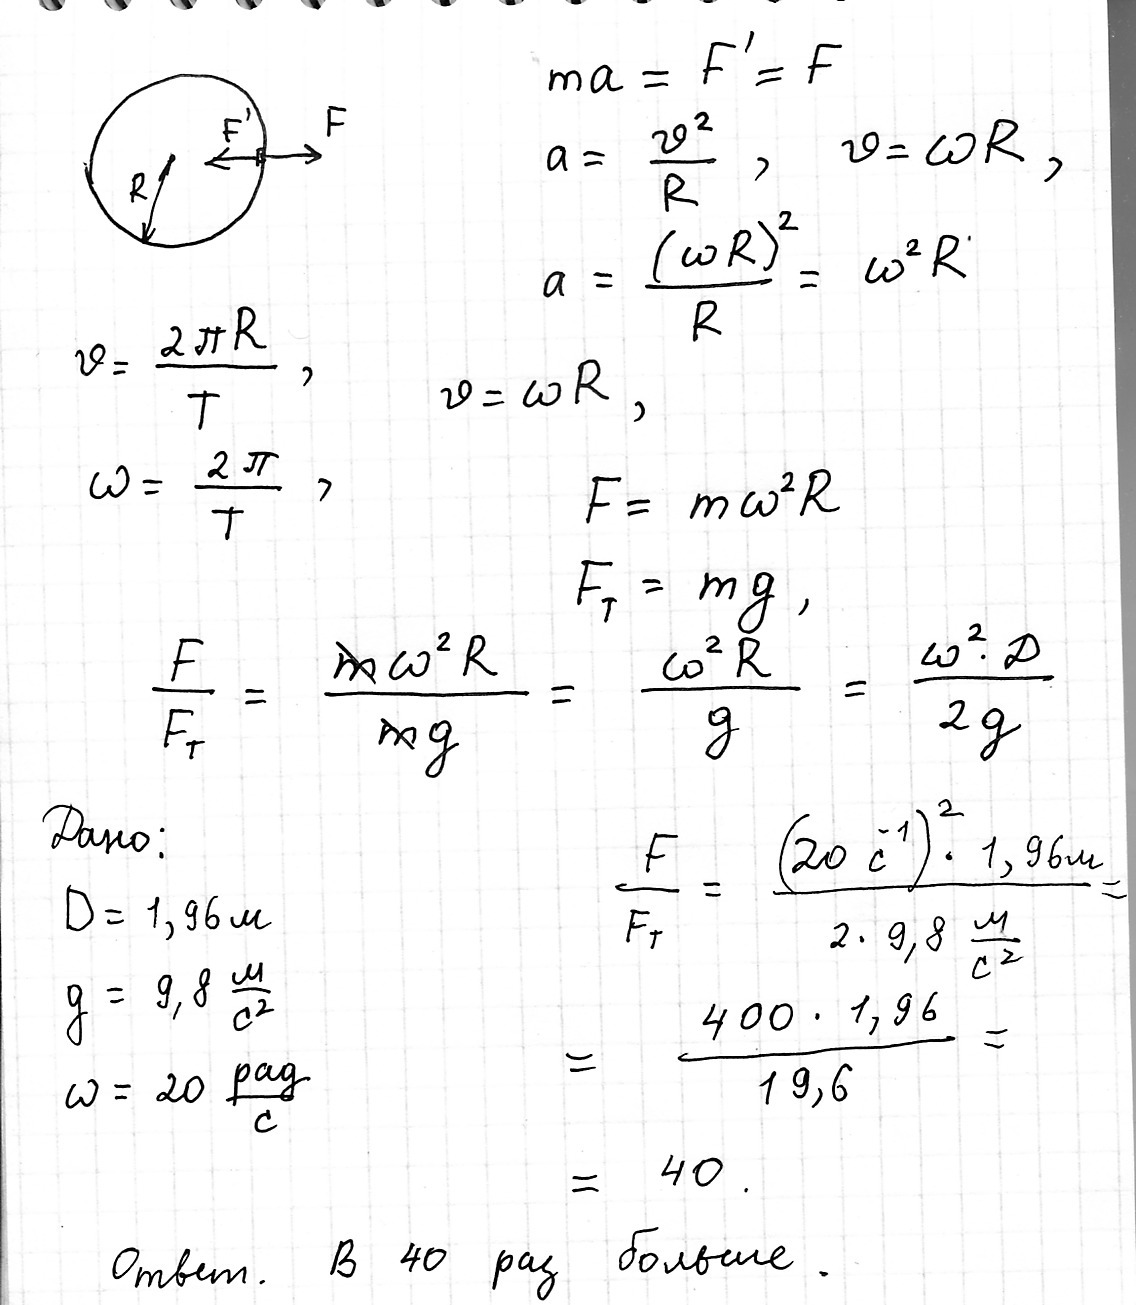 ma = F' = F
F' F
R
a = υ²/R , υ = ωR ,
a = (ωR)²/R = ω²R
υ = 2πR/T , υ = ωR ,
ω = 2π/T ,
F = mω²R
F_т = mg ,
F/F_т = mω²R/mg = ω²R/g = ω²·D/2g
Дано:
D = 1,96 м
g = 9,8 м/с²
ω = 20 рад/с
F/F_т = (20 с⁻¹)²·1,96м / 2·9,8 м/с² =
= 400·1,96/19,6 =
= 40.
Ответ. В 40 раз больше.